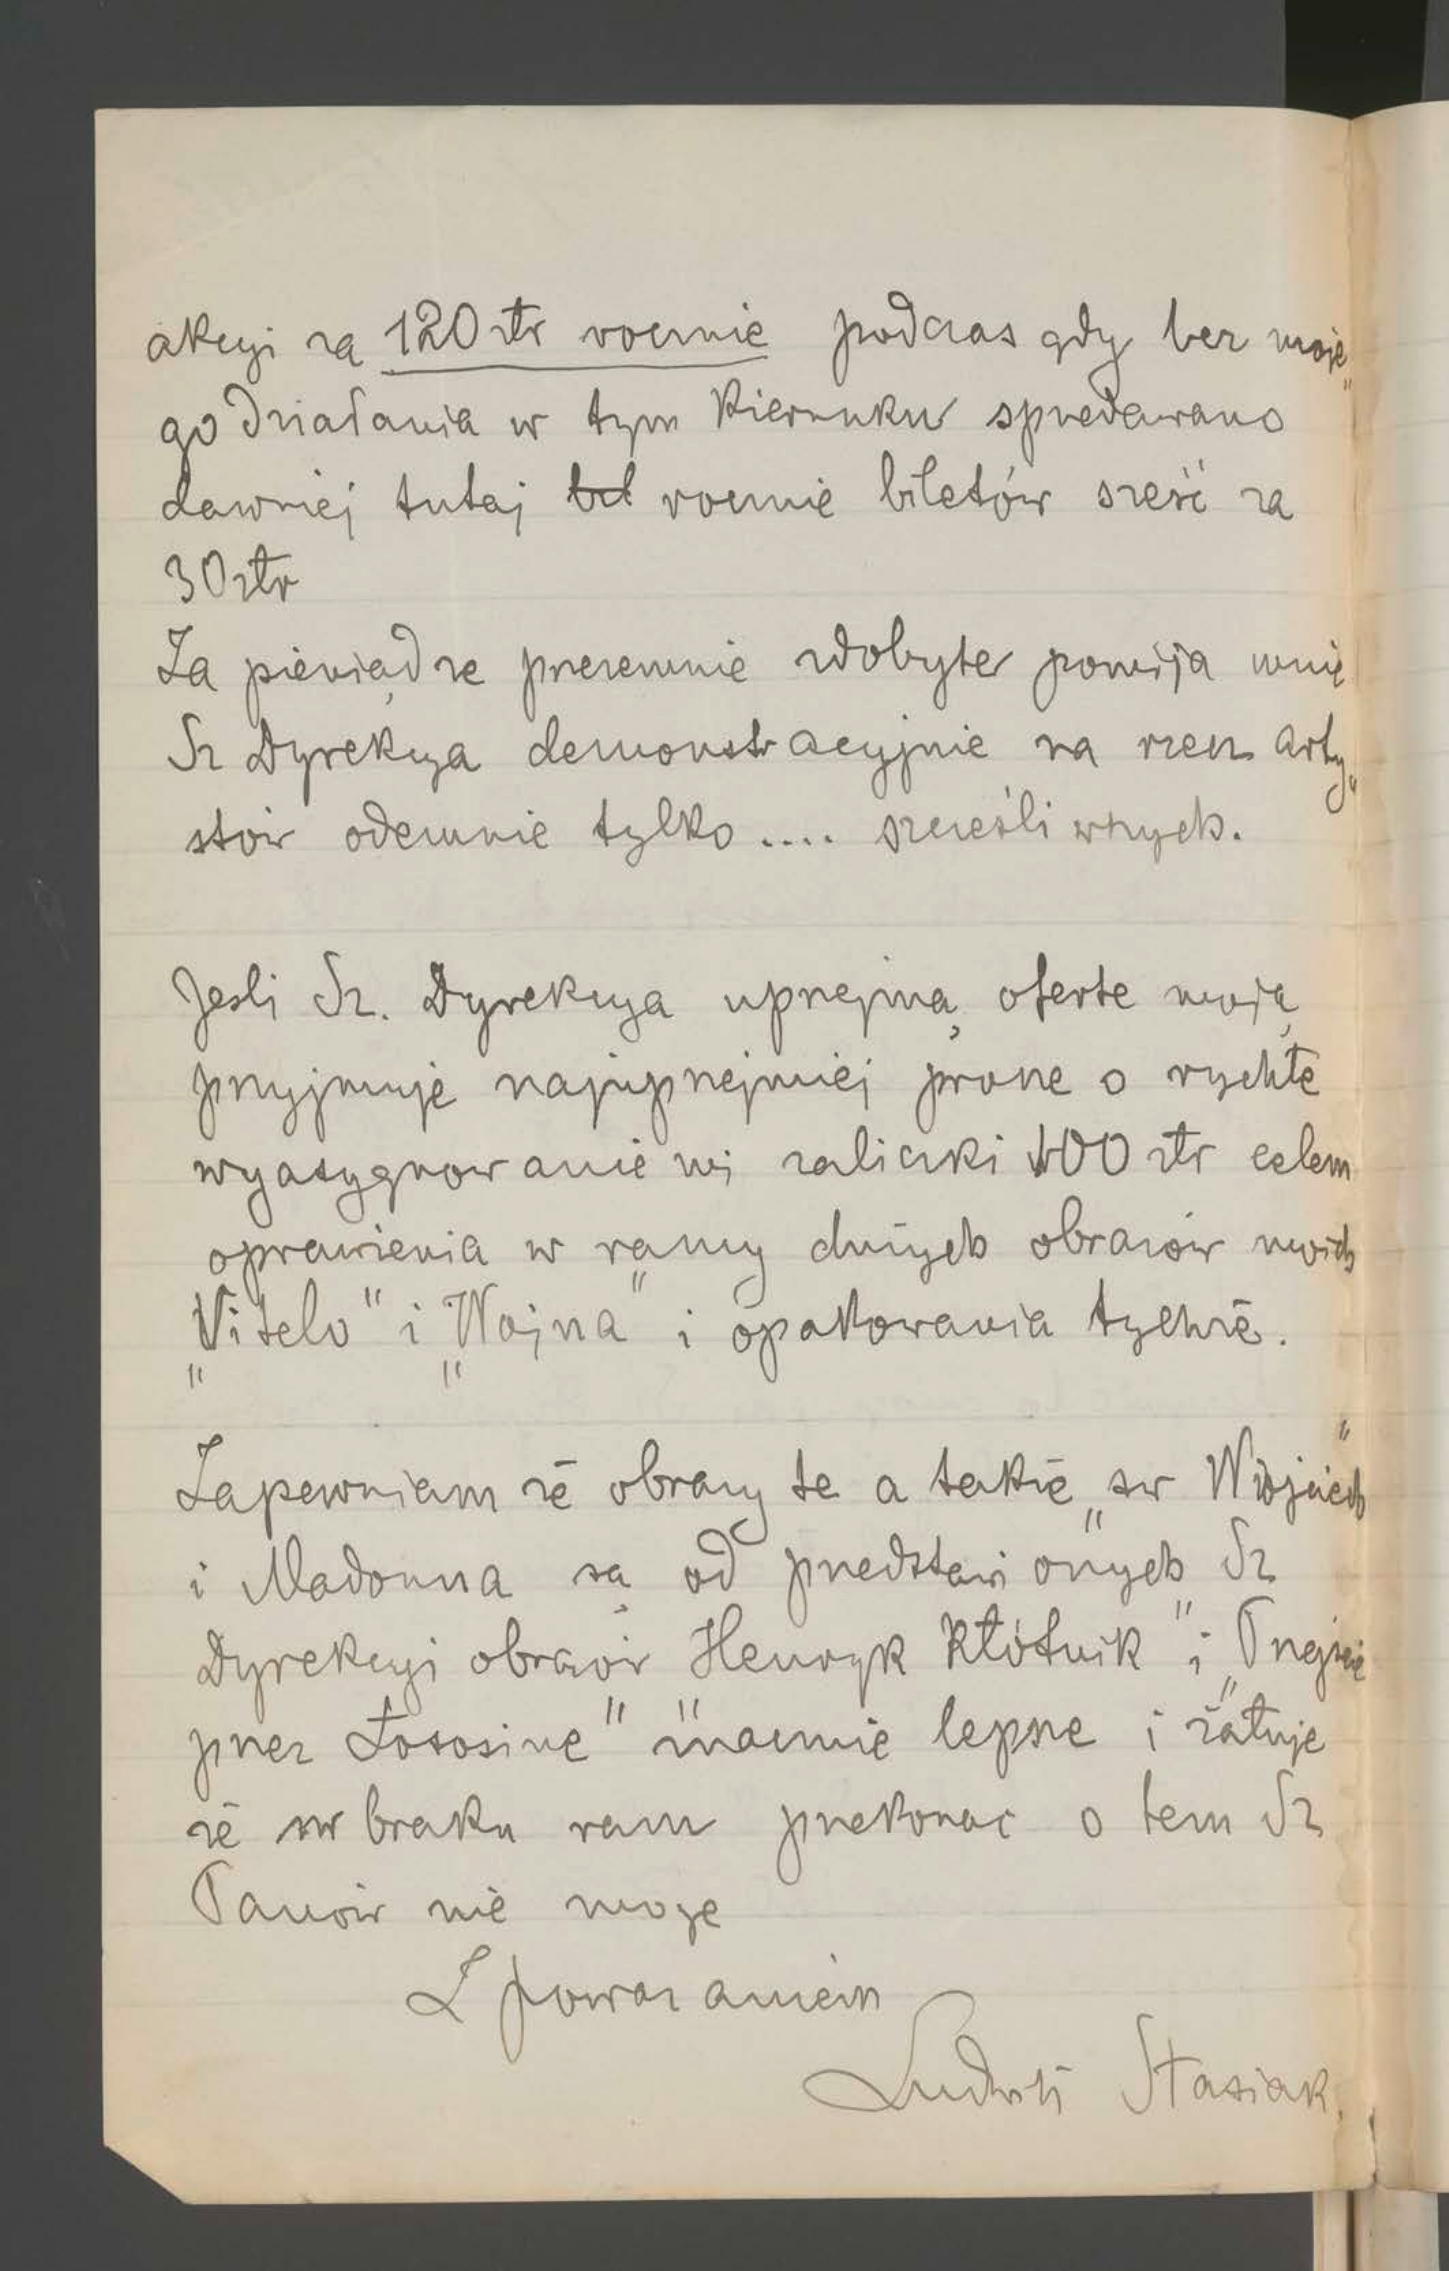 akcyi za 120 złr rocznie podczas gdy bez moje„
go działania w tym kierunku sprzedawano
dawniej tutaj rocznie biletów sześć za
30 złr
Za pieniądze przezemnie zdobyte pomija mnie
Sz Dyrekcya demonstracyjnie na rzecz arty„
stów odemnie tylko .... szcześliwszych.
Jesli Sz. Dyrekcya uprzejmą oferte moją
przyjmuje najuprzejmiej prosze o rychłe
wyasygnowanie mi zaliczki 100 złr celem
oprawienia w ramy dużych obrazów moich
„Vitelo" i „Wojna" i opakowania tychże.
Zapewniam że obrazy te a także „sw Wojciech"
i Madonna są od przedstawionych Sz
Dyrekcyi obrazów Henryk Kłótnik" i „Przejscie
przez Łososine" znacznie lepsze i żałuje
że w braku ram przekonac o tem Sz
Panów nie moge
Z powazaniem
Ludwik Stasiak.